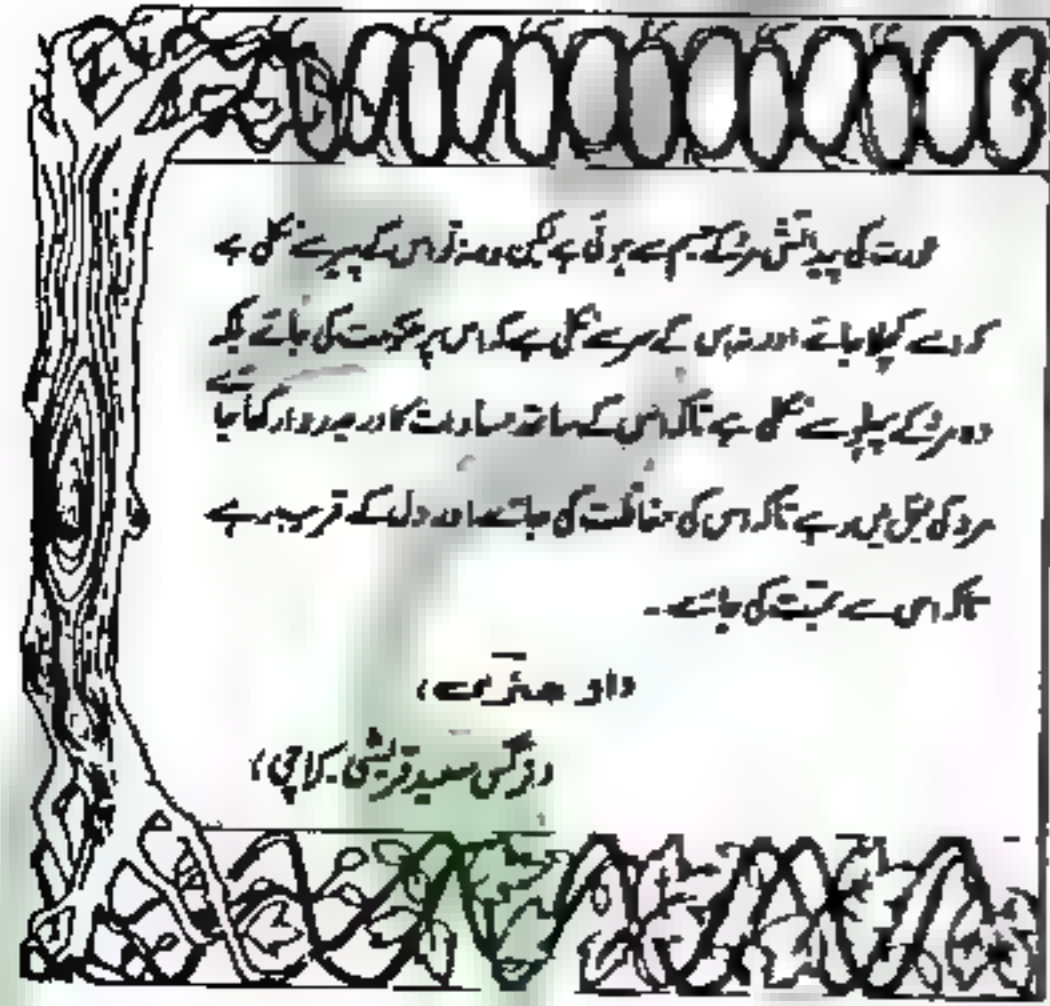 عورت کی پیدائش مرد کے جسم سے ہوئی ہے لیکن وہ نہ تو اس کے پیر سے نکلی ہے
کہ اسے کچلا جائے اور نہ اس کے سر سے نکلی ہے کہ اس پر حکومت کی جائے بلکہ
وہ مرد کے پہلو سے نکلی ہے تاکہ اس کے ساتھ مساوات کا درجہ روا رکھا جائے
مرد کی بغل میں رہے تاکہ اس کی حفاظت کی جائے اور دل کے قریب رہے
تاکہ اس سے محبت کی جائے۔
(نرگس سعید قریشی۔ کراچی)